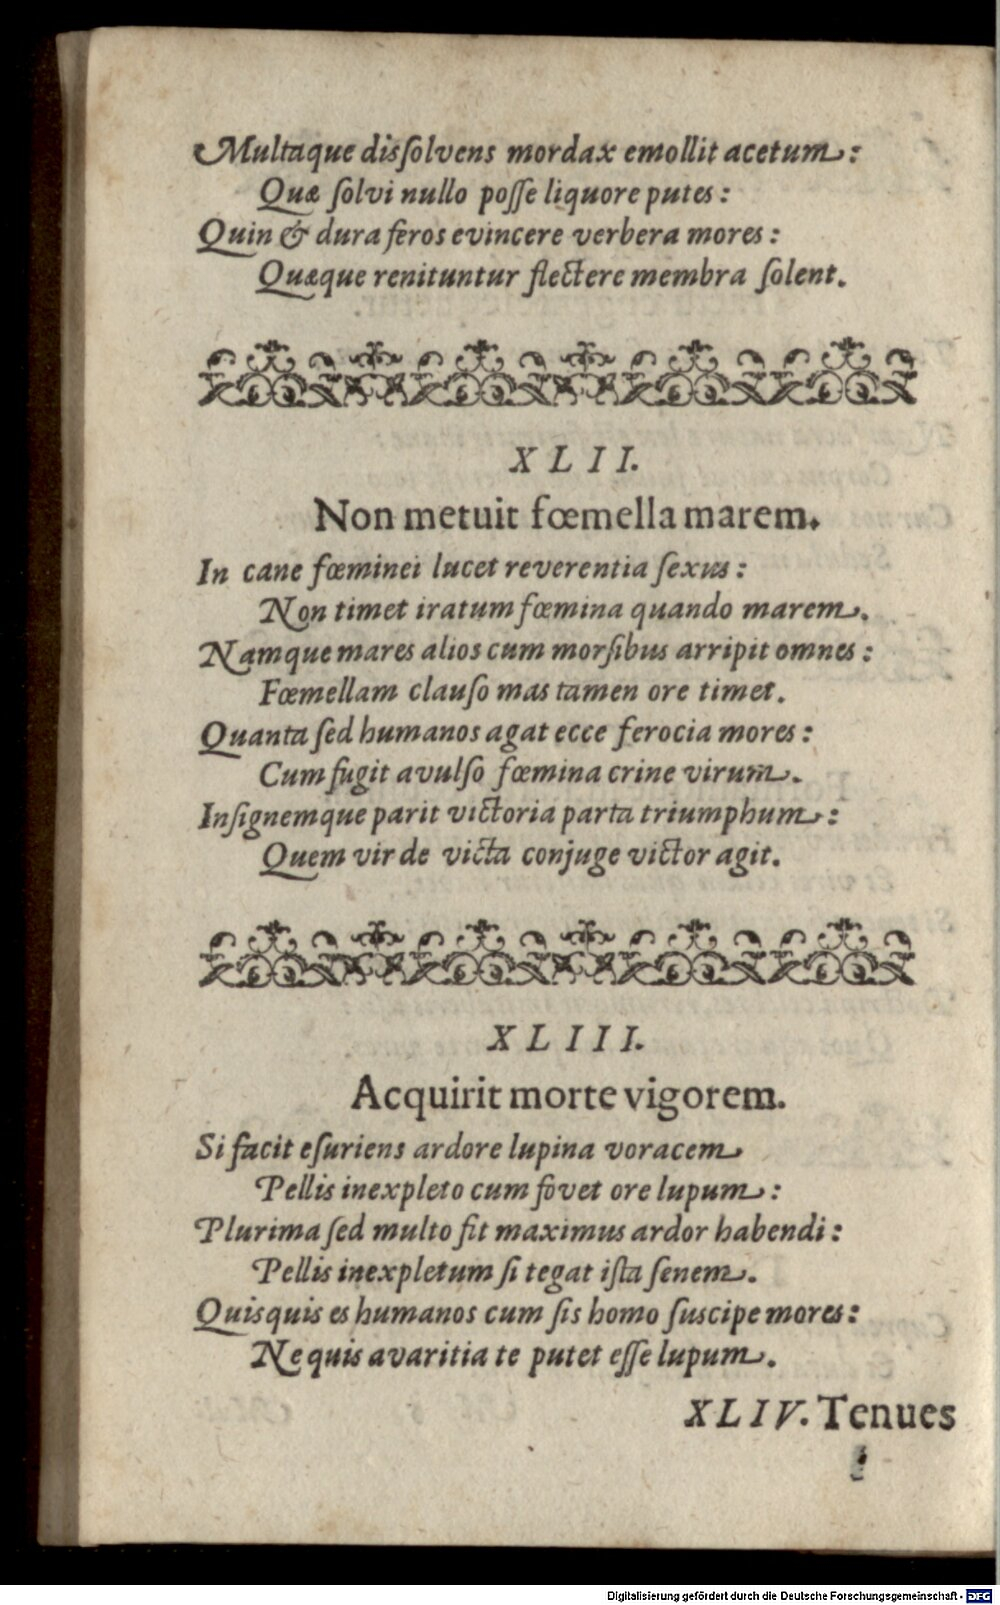 Multaque disſolvens mordax emollit acetum:
Quæ ſolvi nullo poſſe liquore putes:
Quin & dura feros evincere verbera mores:
Quæque renituntur flectere membra ſolent.
XLII.
Non metuit fœmella marem.
In cane fœminei lucet reverentia ſexus:
Non timet iratum fœmina quando marem.
Namque mares alios cum morſibus arripit omnes:
Fœmellam clauſo mas tamen ore timet.
Quanta ſed humanos agat ecce ferocia mores:
Cum fugit avulſo fœmina crine virum.
Inſignemque parit victoria parta triumphum:
Quem vir de victa conjuge victor agit.
XLIII.
Acquirit morte vigorem.
Si facit eſuriens ardore lupina voracem
Pellis inexpleto cum fovet ore lupum:
Plurima ſed multo fit maximus ardor habendi:
Pellis inexpletum ſi tegat iſta ſenem.
Quisquis es humanos cum ſis homo ſuscipe mores:
Ne quis avaritia te putet eſſe lupum.
XLIV. Tenues
Digitalisierung gefördert durch die Deutsche Forschungsgemeinschaft - DFG